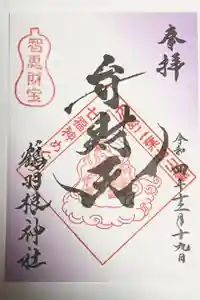 奉拝
令和四年十二月十九日
弁財天
七福神め
智恵財宝
鶴羽根神社